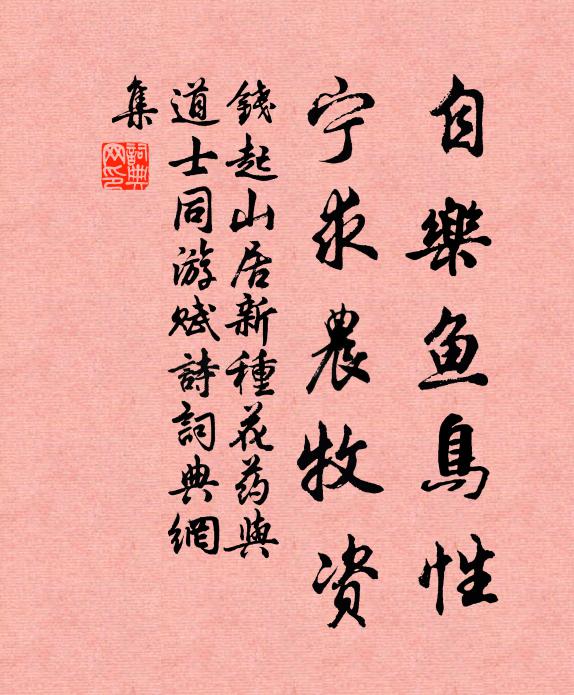 自樂鱼鳥性
宁求農牧资
錢起山居新種花药與
道士同游赋詩詞典網
集
詞典网印